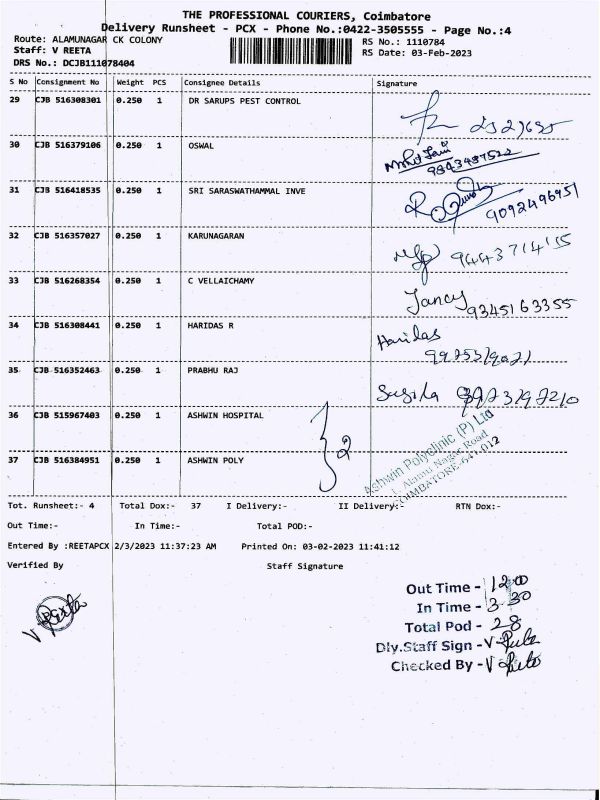 THE PROFESSIONAL COURIERS, Coimbatore
Delivery Runsheet - PCX - Phone No.:0422-3505555 - Page No.:4
Route: ALAMUNAGAR CK COLONY RS No.: 1110784
Staff: V REETA RS Date: 03-Feb-2023
DRS No.: DCJB111078404
S No Consignment No Weight PCS Consignee Details Signature
29 CJB 516308301 0.250 1 DR SARUPS PEST CONTROL
30 CJB 516379106 0.250 1 OSWAL
31 CJB 516418535 0.250 1 SRI SARASWATHAMMAL INVE 9092496951
32 CJB 516357027 0.250 1 KARUNAGARAN
33 CJB 516268354 0.250 1 C VELLAICHAMY Jancy 9345163355
34 CJB 516308441 0.250 1 HARIDAS R Haridas
35 CJB 516352463 0.250 1 PRABHU RAJ Sugila
36 CJB 515967403 0.250 1 ASHWIN HOSPITAL
2
37 CJB 516384951 0.250 1 ASHWIN POLY
Ashwin Polyclinic (P) Ltd
1, Alamu Nagar Road
COIMBATORE-641 012
Tot. Runsheet:- 4 Total Dox:- 37 I Delivery:- II Delivery:- RTN Dox:-
Out Time:- In Time:- Total POD:-
Entered By :REETAPCX 2/3/2023 11:37:23 AM Printed On: 03-02-2023 11:41:12
Verified By Staff Signature
V Reeta
Out Time - 12.00
In Time - 3.30
Total Pod - 28
Dly.Staff Sign - V Reeta
Checked By - V Reeta